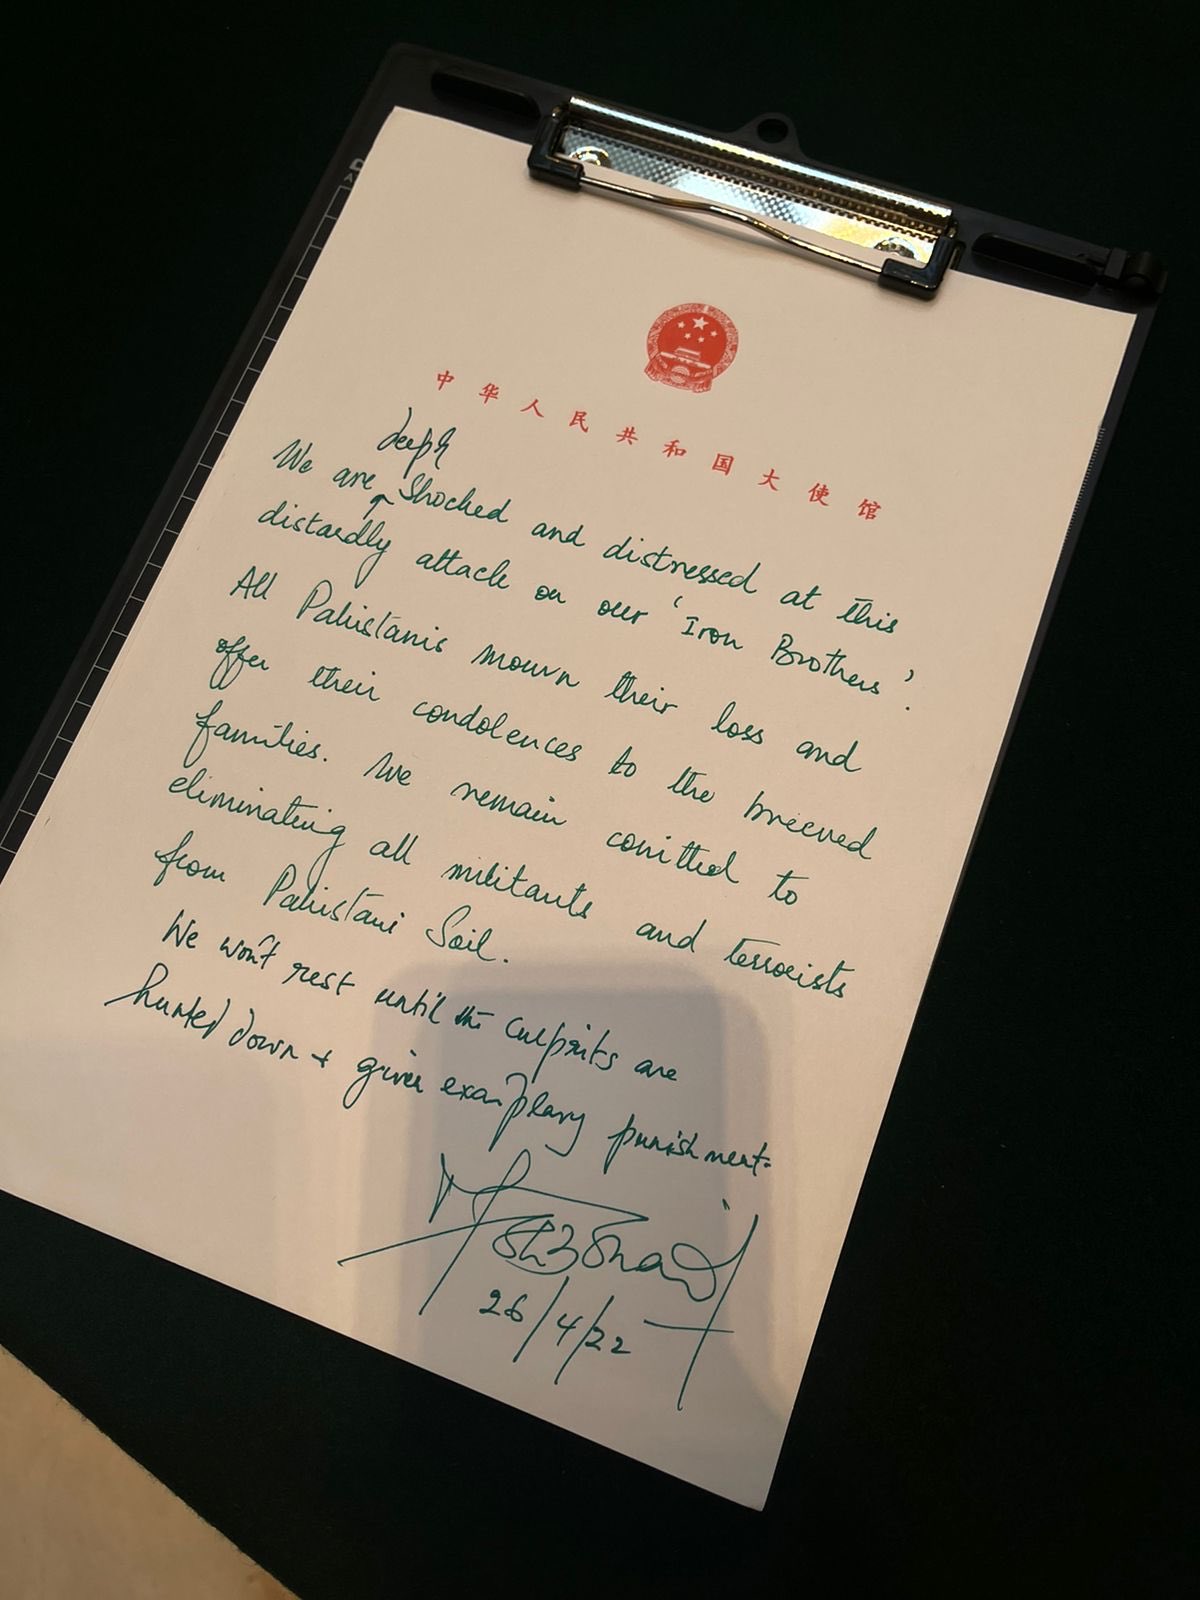 中华人民共和国大使馆
deeply
We are shocked and distressed at this
distardly attack on our 'Iron Brothers'.
All Pakistanis mourn their loss and
offer their condolences to the breeved
families. We remain comitted to
eliminating all militants and terrorists
from Pakistani Soil.
We won't rest until the culprits are
hunted down + given exemplary punishment.
26/4/22